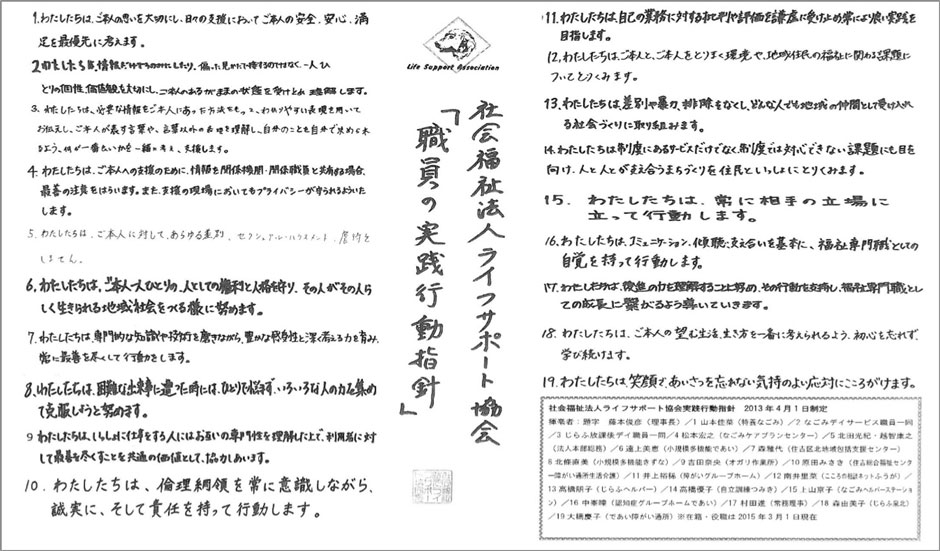 1.わたしたちは、ご本人の思いを大切にし、日々の支援においてご本人の安全、安心、満
足を最優先に考えます。
2.わたしたちは、情報だけをうのみにしたり、偏った見かたで接するのではなく、一人ひ
とりの個性、価値観を大切にし、ご本人のあるがままの状態を受けとめ理解します。
3.わたしたちは、必要な情報をご本人にあった方法をもって、わかりやすい表現を用いて
お伝えし、ご本人が表す言葉や、言葉以外の表現を理解し、自分のことを自分で決められ
るよう、何が一番良いかを一緒に考え、支援します。
4.わたしたちは、ご本人への支援のために、情報を関係機関・関係職員と共有する場合、
最善の注意をはらいます。また、支援の現場においてもプライバシーが守られるよういた
します。
5.わたしたちは、ご本人に対して、あらゆる差別、セクシュアル・ハラスメント、虐待を
しません。
6.わたしたちは、ご本人一人ひとりの、人としての権利と人格を守り、その人がその人ら
しく生きられる地域社会をつくる様に努めます。
7.わたしたちは、専門的な知識や技術を磨きながら、豊かな感受性と深く考える力を育み、
常に最善を尽くして行動をします。
8.わたしたちは、困難な出来事に遭った時には、ひとりで悩まず、いろいろな人の力を集め
て克服しようと努めます。
9 わたしたちは、いっしょに仕事をする人にはお互いの専門性を理解した上で、利用者に対
して最善を尽くすことを共通の価値として、協力しあいます。
10.わたしたちは、倫理綱領を常に意識しながら、
誠実に、そして責任を持って行動します。
Life Support Association
社会福祉法人ライフサポート協会
「職員の実践行動指針」
11.わたしたちは、自己の業務に対する批判や評価を謙虚に受け止め常により良い実践を
目指します。
12.わたしたちは、ご本人と、ご本人をとりまく環境や、地域住民の福祉に関わる課題に
ついてとりくみます。
13.わたしたちは、差別や暴力、排除をなくし、どんな人でも地域の仲間として受け入れ
る社会づくりに取り組みます。
14.わたしたちは制度にあるサービスだけでなく、制度では対応できない課題にも目を
向け、人と人とが支え合うまちづくりを住民といっしょにとりくみます。
15.わたしたちは、常に相手の立場に
立って行動します。
16.わたしたちは、コミュニケーション、傾聴、支え合いを基本に、福祉専門職としての
自覚を持って行動します。
17.わたしたちは、後進の力を理解することに努め、その行動を支持し、福祉専門職とし
ての成長に繋がるよう導いていきます。
18.わたしたちは、ご本人の望む生活、生き方を一番に考えられるよう、初心を忘れず、
学び続けます。
19.わたしたちは、笑顔で、あいさつを忘れない気持のよい応対にこころがけます。
社会福祉法人ライフサポート協会実践行動指針 2013年4月1日制定
揮毫者:題字 藤本俊彦(理事長)/1 山本佳菜(特養なごみ)/2 なごみデイサービス職員一同
/3 じらふ放課後デイ職員一同/4 松本宏之(なごみケアプランセンター)/5 北田光紀・越智康之
(法人本部総務)/6 連上美恵(小規模多機能であい)/7 森雅代(住吉区北地域包括支援センター)
/8 北條直美(小規模多機能きずな)/9 吉田奈央(オガリ作業所)/10 原田みさき(住吉総合福祉センタ
ー障がい通所生活介護)/11 井上裕稀(障がいグループホーム)/12 南井里菜(こころの相談ネットふうが)/
13 高橋朋子(じらふヘルパー)/14 高橋優子(自立訓練つみき)/15 上山京子(なごみヘルパーステーショ
ン)/16 中峯暲(認知症グループホームであい)/17 村田進(常務理事)/18 森由美子(じらふ泉北)
/19 大橋慶子(であい障がい通所)※在籍・役職は2015年3月1日現在